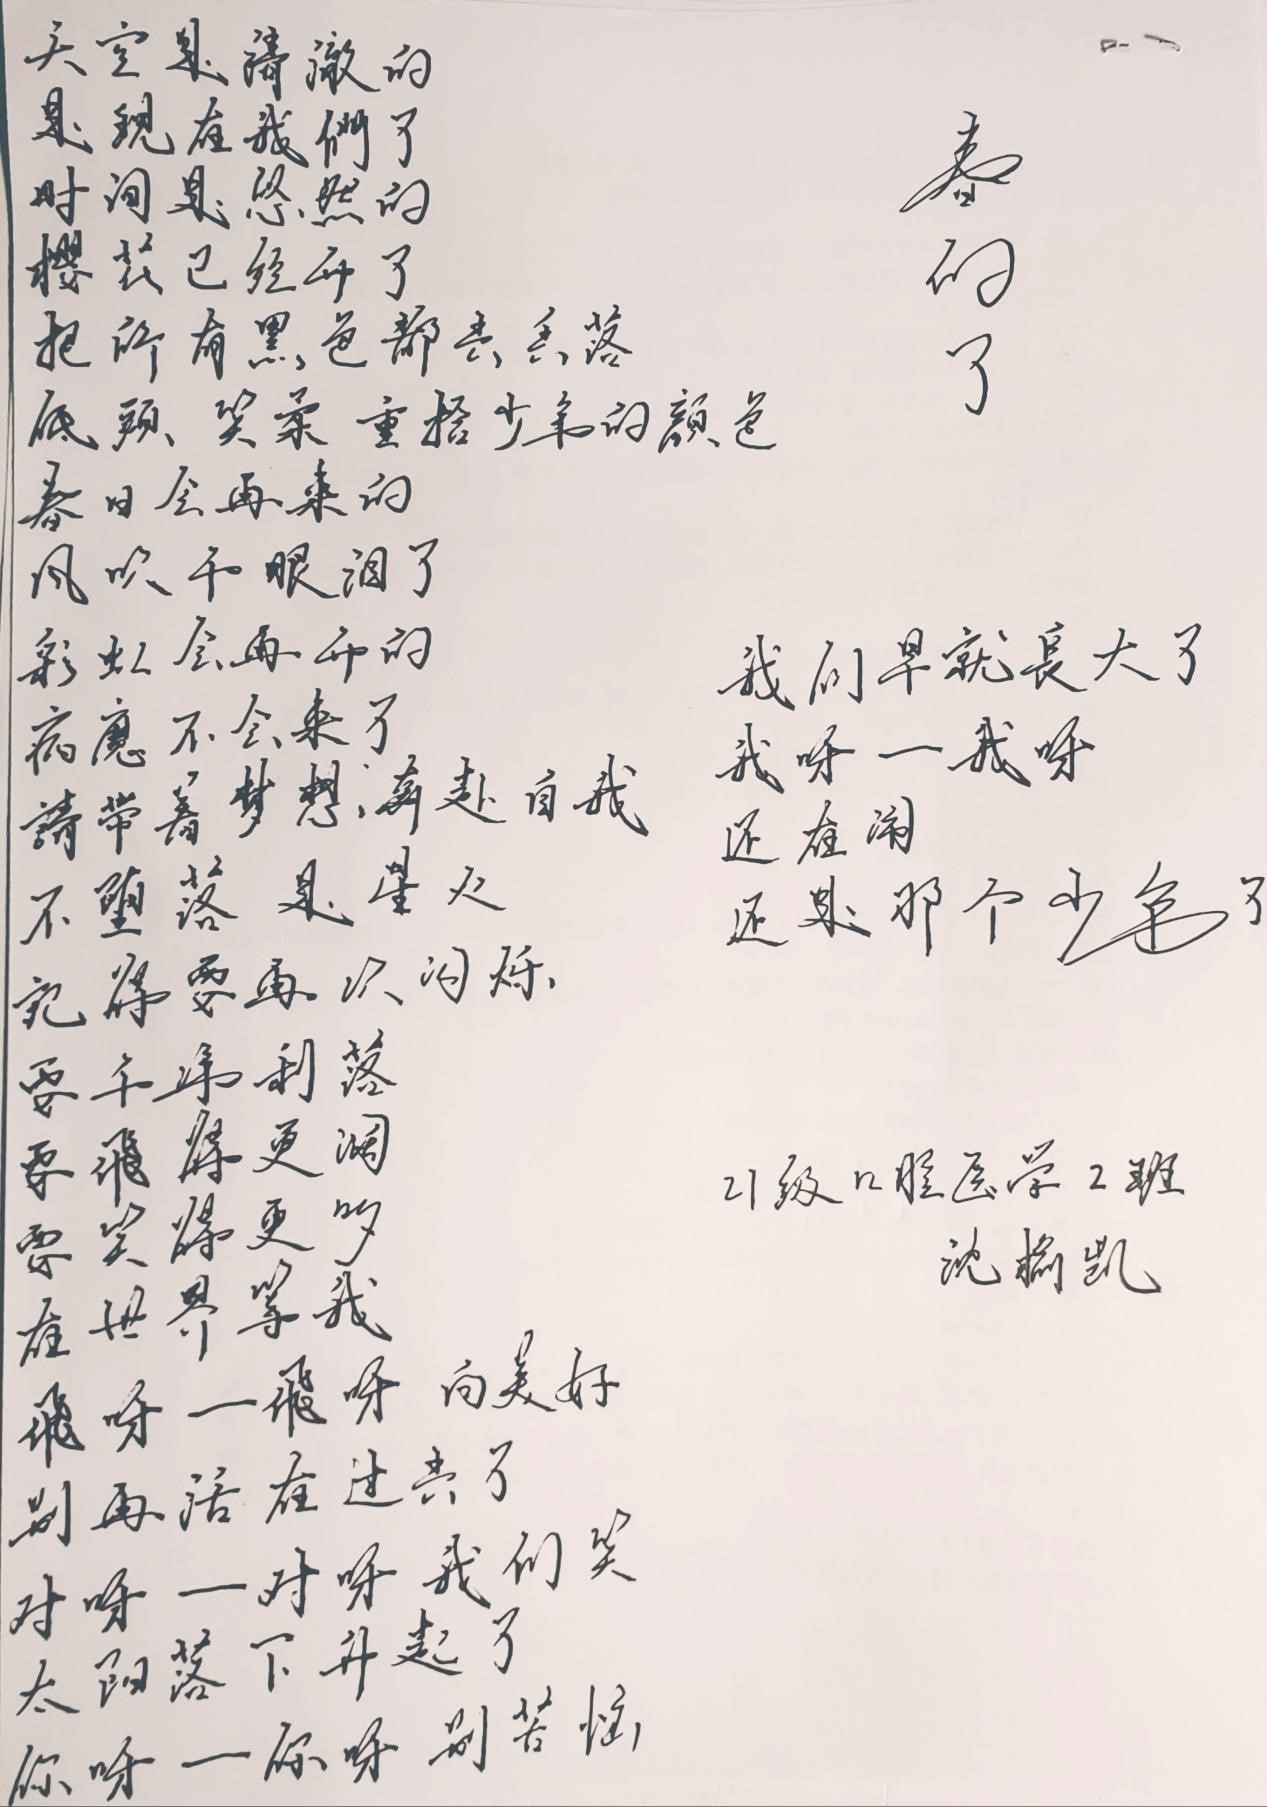 春的了
天空是請澈的
是現在我們了
时间是悠然的
櫻花已经开了
把所有黑色都去丢落
底頭笑柔 重搭少年的顏色
春日会再来的
风吹干眼泪了
彩虹会再开的
病應不会来了
請带着梦想奔赴自我
不堕落 是星火
記得要再次闪烁
要干净利落
要飛得更阔
要笑得更多
在世界等我
飛呀一飛呀 向美好
别再活在过去了
对呀一对呀 我们笑
太阳落下升起了
你呀一你呀 别苦恼
我们早就長大了
我呀一我呀
还在闹
还是那个少年了
21级口腔医学2班
沈榆凯